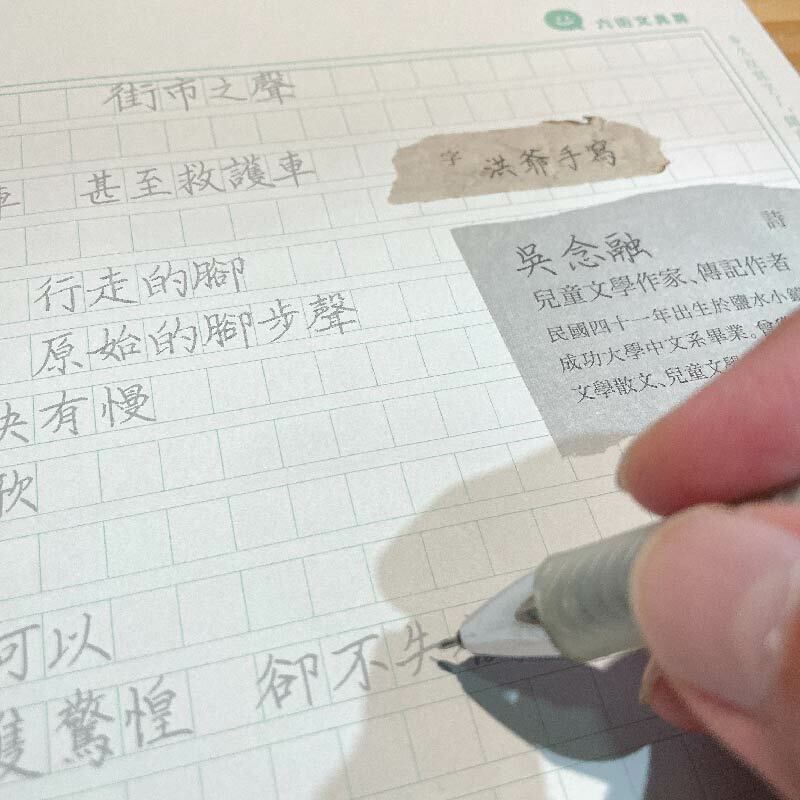 六街文具房
街市之聲
字 洪爺手寫
車 甚至救護車
詩
吳念融
兒童文學作家、傳記作者
民國四十一年出生於鹽水小鎮
成功大學中文系畢業。曾
文學散文、兒童文學
行走的腳
原始的腳步聲
快有慢
欣
可以
隻驚惶 卻不失